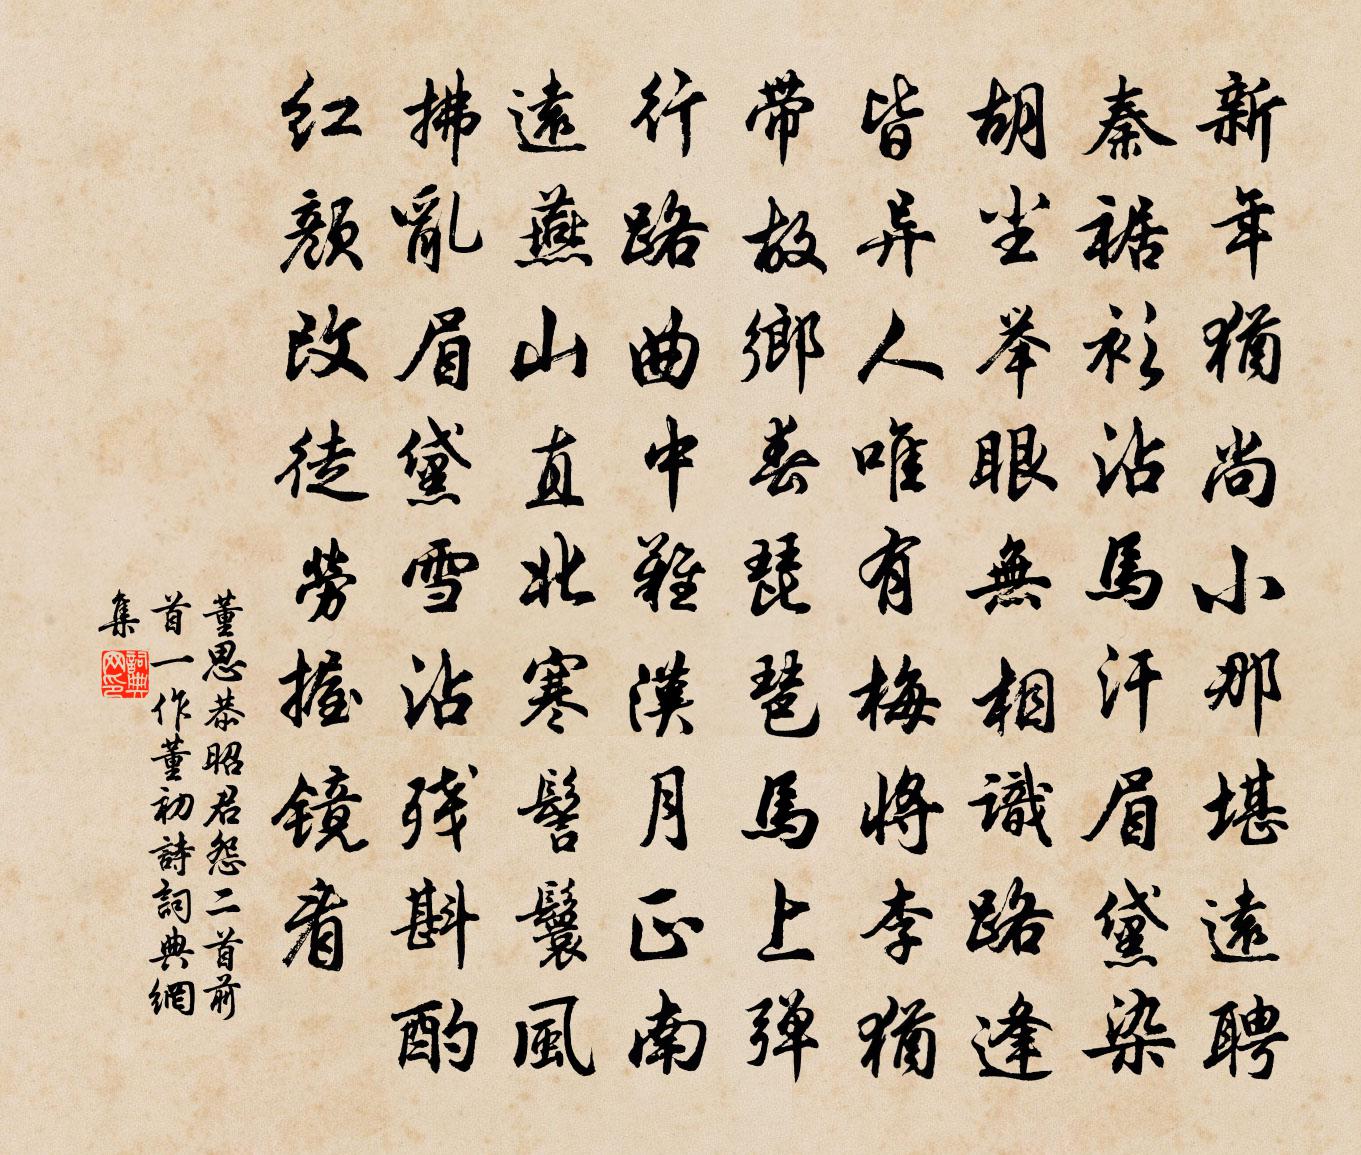 新年猶尚小那堪遠聘
秦裾衫沾馬汗眉黛染
胡尘举眼無相識路逢
皆异人唯有梅將李猶
带故鄉春琵琶馬上弹
行路曲中難漢月正南
遠燕山直北寒髻鬟風
拂亂眉黛雪沾残斟酌
红颜改徒勞握镜看
董思恭昭君怨二首前
首一作董初詩詞典網
集
詞典
网印